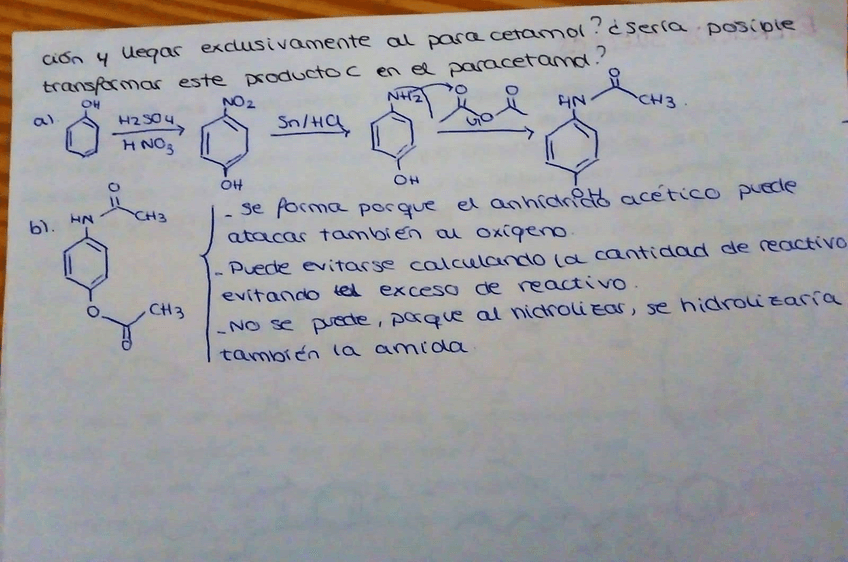 ción y llegar exclusivamente al paracetamol? ¿Sería posible
transformar este producto C en el paracetamol?
a).
OH
H2SO4
HNO3
NO2
OH
Sn/HCl
NH2
OH
O
O
O
HN
O
CH3.
OH
b).
O
HN
CH3
O
CH3
O
- Se forma porque el anhídrido acético puede
atacar también al oxígeno.
- Puede evitarse calculando la cantidad de reactivo
evitando el exceso de reactivo.
- No se puede, porque al hidrolizar, se hidrolizaría
también la amida.